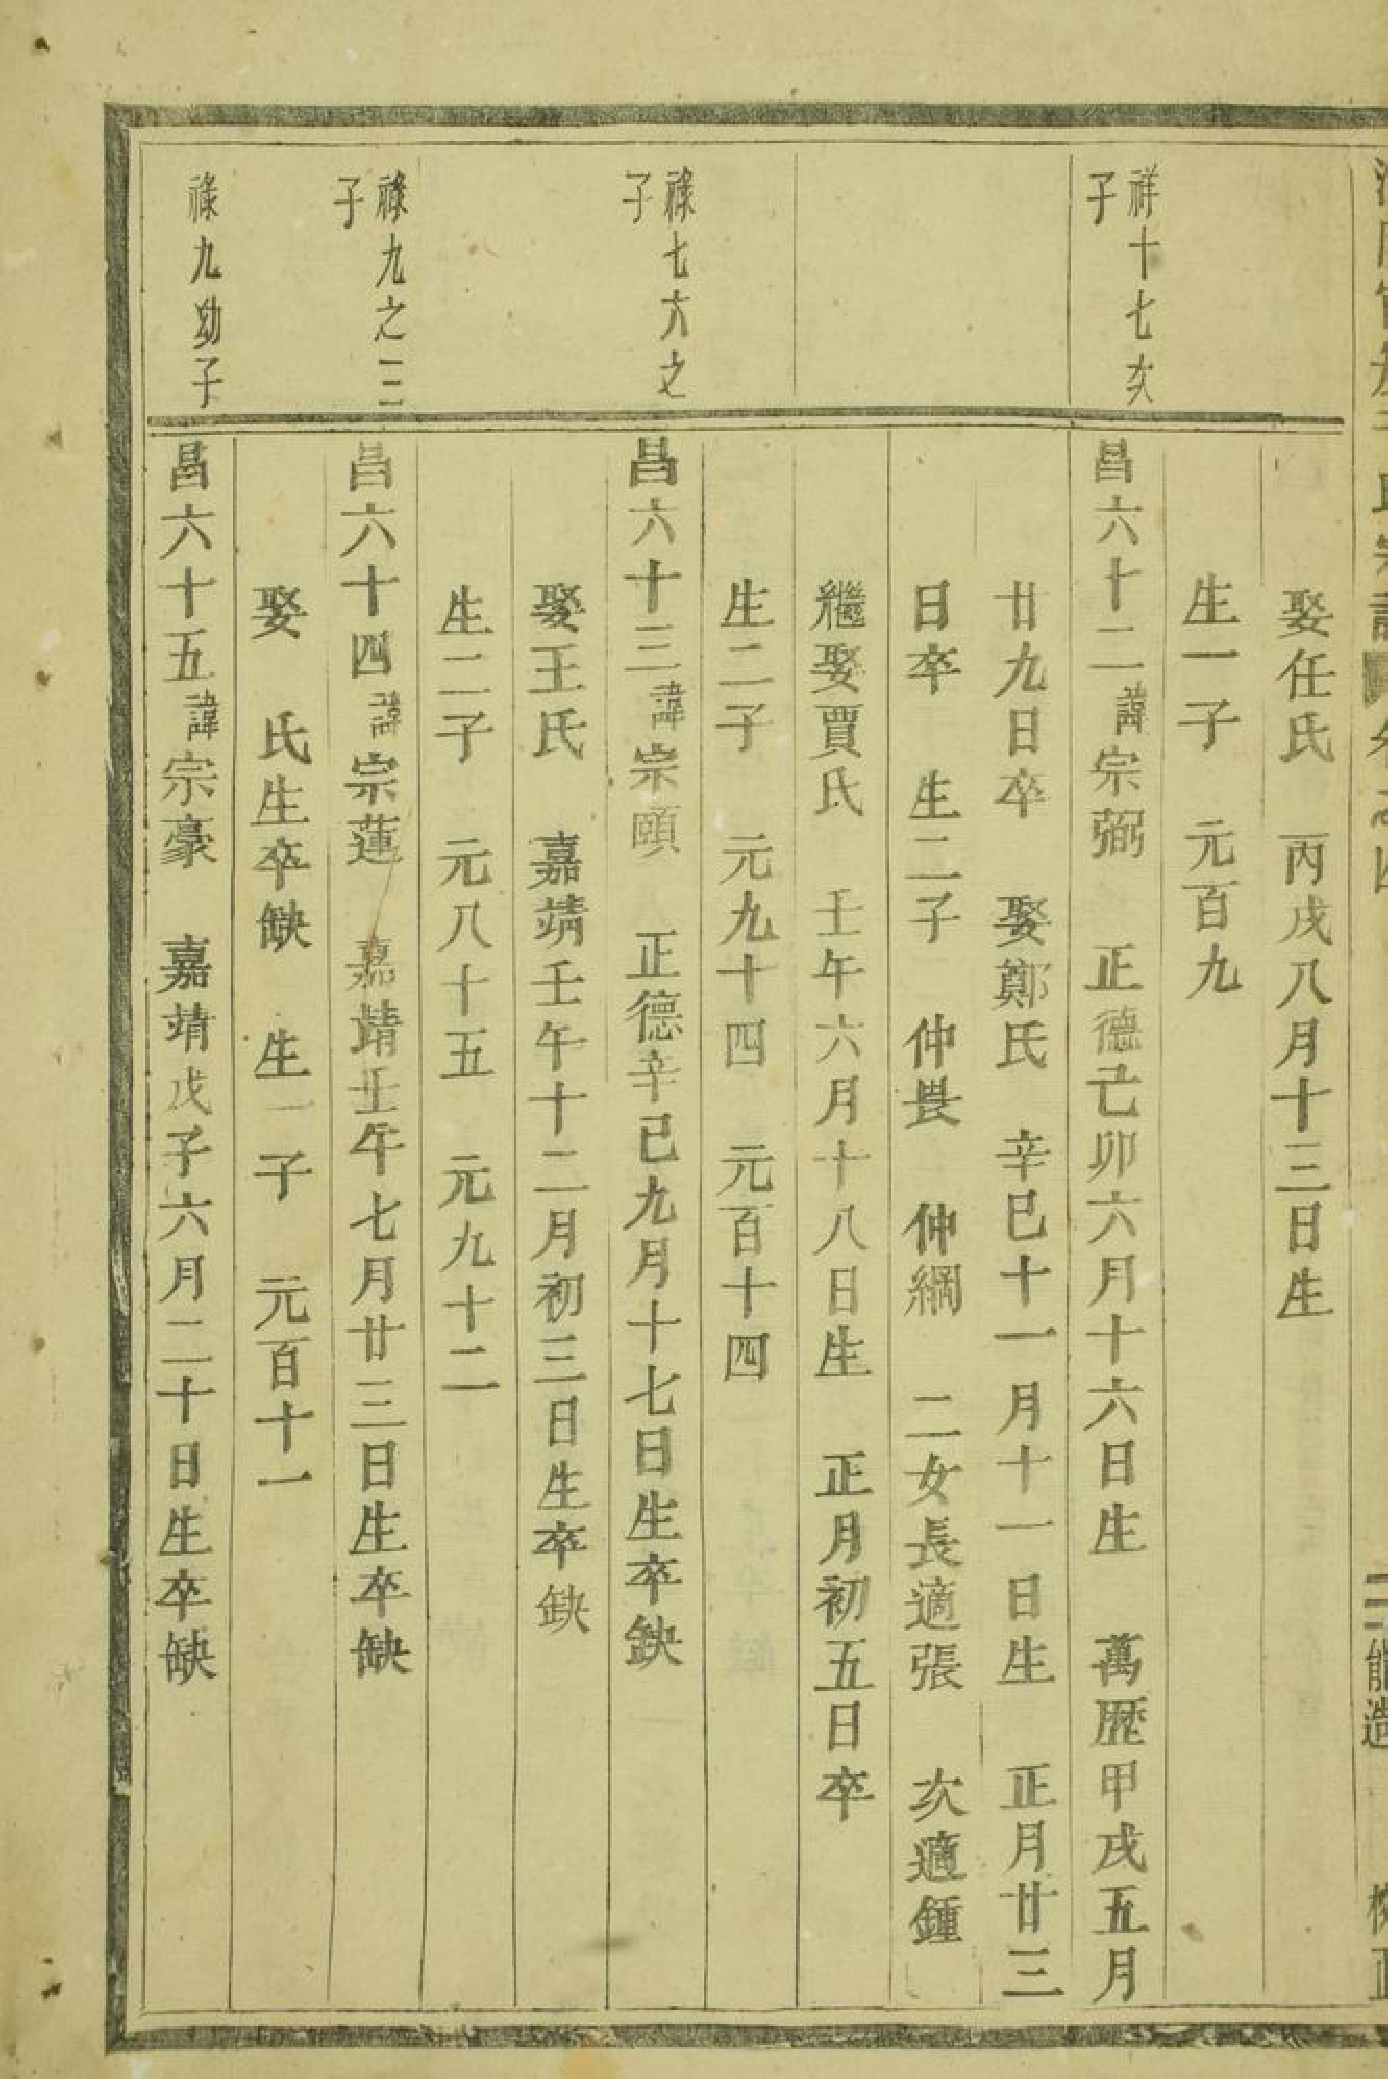 娶任氏　丙戌八月十三日生
生一子　元百九
祥十七次
子
昌六十二諱宗弼　正德己卯六月十六日生　萬歷甲戌五月
廿九日卒　娶鄭氏　辛巳十一月十一日生　正月廿三
日卒　生二子　仲長　仲綱　二女長適張　次適鍾
繼娶賈氏　壬午六月十八日生　正月初五日卒
生二子　元九十四　元百十四
祿七六之
子
昌六十三諱宗頤　正德辛巳九月十七日生卒缺
娶王氏　嘉靖壬午十二月初三日生卒缺
生二子　元八十五　元九十二
祿九之三
子
昌六十四諱宗蓮　嘉靖壬午七月廿三日生卒缺
娶　氏生卒缺　生一子　元百十一
祿九幼子
昌六十五諱宗豪　嘉靖戊子六月二十日生卒缺